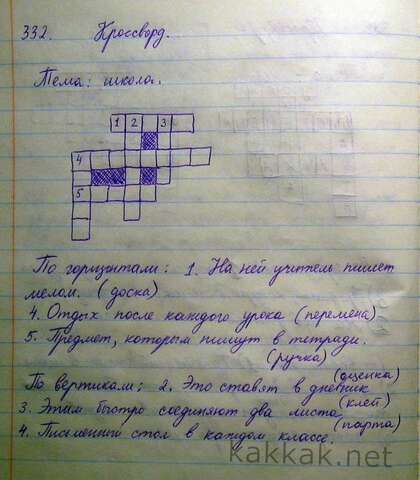 332. Кроссворд.
Тема: школа.
1 2 3
4
5
По горизонтали: 1. На ней учитель пишет
мелом. (доска)
4. Отдых после каждого урока (перемена)
5. Предмет, которым пишут в тетради.
(ручка)
(оценка)
По вертикали: 2. Это ставят в дневник
3. Этим быстро соединяют два листа (клей)
4. Письменный стол в каждом классе. (парта)
kakkak.net